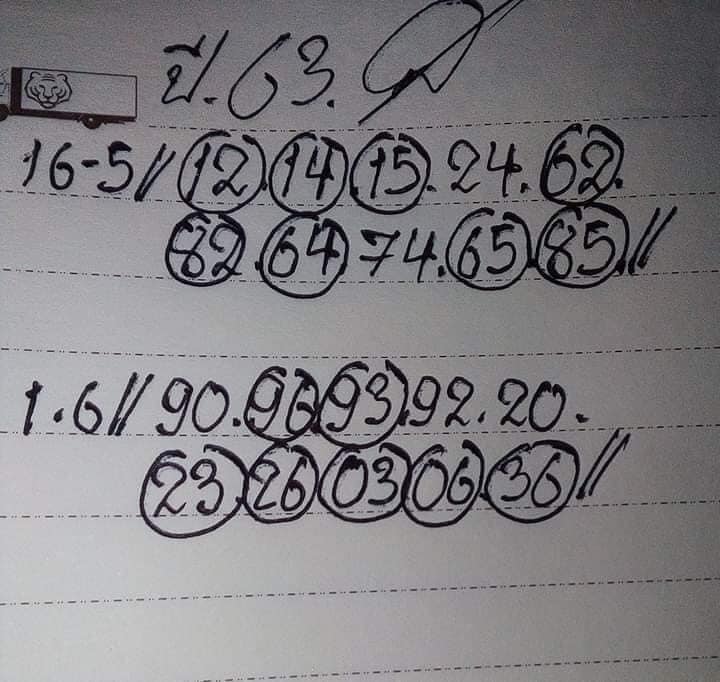 ปี.63.
16-5//12.14.15.24.62.
82.64.74.65.85.//
1.6//90.96.93.92.20.
23.26.03.06.36//